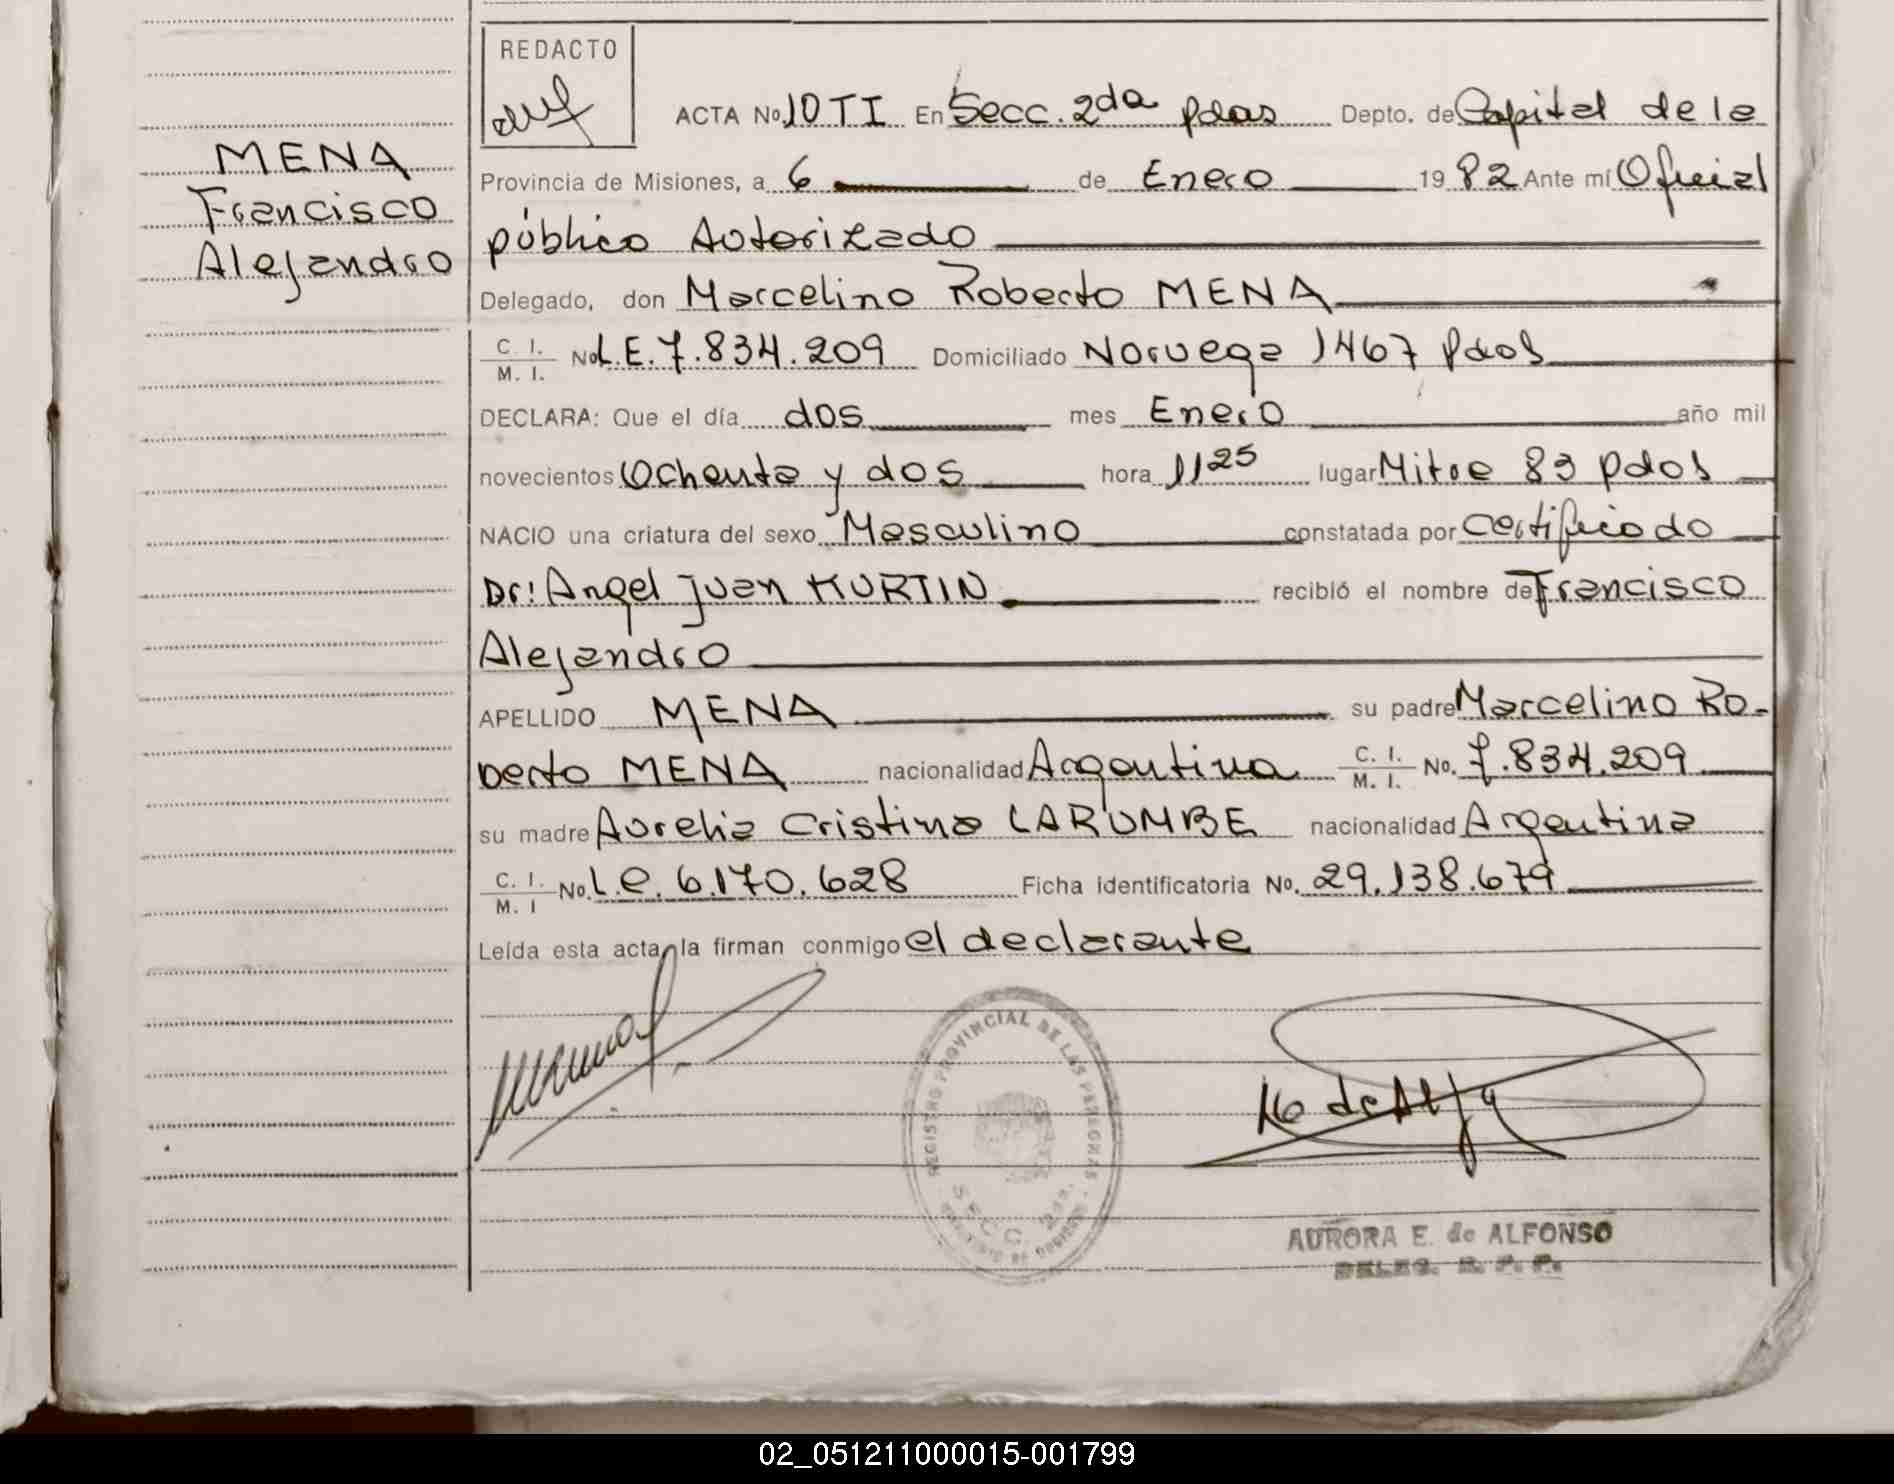 REDACTO
ACTA No. 10 TI En Secc. 2da pdas Depto. de Capital de la
MENA
Francisco
Alejandro
Provincia de Misiones, a 6 de Enero 1982 Ante mí Oficial
público Autorizado
Delegado, don Marcelino Roberto MENA
C. I.
M. I. No L.E. 7.834.209 Domiciliado Noruega 1467 Pdas
DECLARA: Que el día dos mes Enero año mil
novecientos Ochenta y dos hora 11 25 lugar Mitre 83 pdas
NACIO una criatura del sexo Masculino constatada por Certificado
Dr: Angel Juan KURTIN recibió el nombre de Francisco
Alejandro
APELLIDO MENA su padre Marcelino Ro-
berto MENA nacionalidad Argentina C. I. M. I. No. 7.834.209
su madre Aurelia Cristina LARUMBE nacionalidad Argentina
C. I.
M. I No. L.e. 6.170.628 Ficha identificatoria No. 29.138.679
Leída esta acta, la firman conmigo el declarante
REGISTRO PROVINCIAL DE LAS PERSONAS
SECC. 2da.
AURORA E. de ALFONSO
DELEG. R. P. P.
02_051211000015-001799